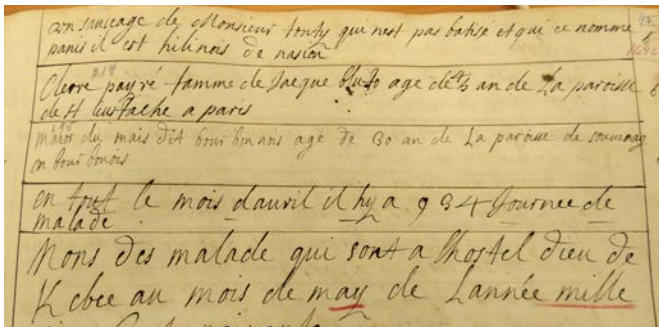 un sauvage de Monsieur tonty qui nest pas batisé et qui ce nomme
panis il est hilinois de nasion
payré famme de Jaeque age de 45 an de La paroisse
de st Eustache a paris
du mais dit bourbonnois agé de 30 an de La paroisse de souvenag
en bourbonois
en tout le mois dauvril il hy a 934 Journee de
malade
Nons des malade qui sont a lhostel dieu de
Kebec au mois de may de Lannée mille